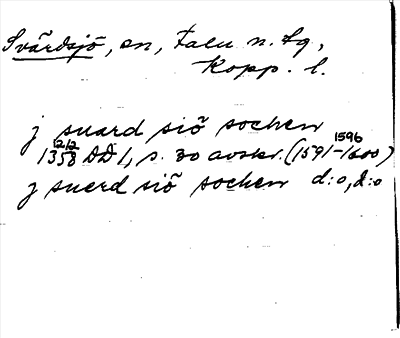 Svärdsjö, sn, Falu n. tg,
Kopp. l.
j suard siö sochen
1358 12/12 DD 1, s. 30 avskr. (1591-1600) 1596
j suerd siö sochen d:o, d:o